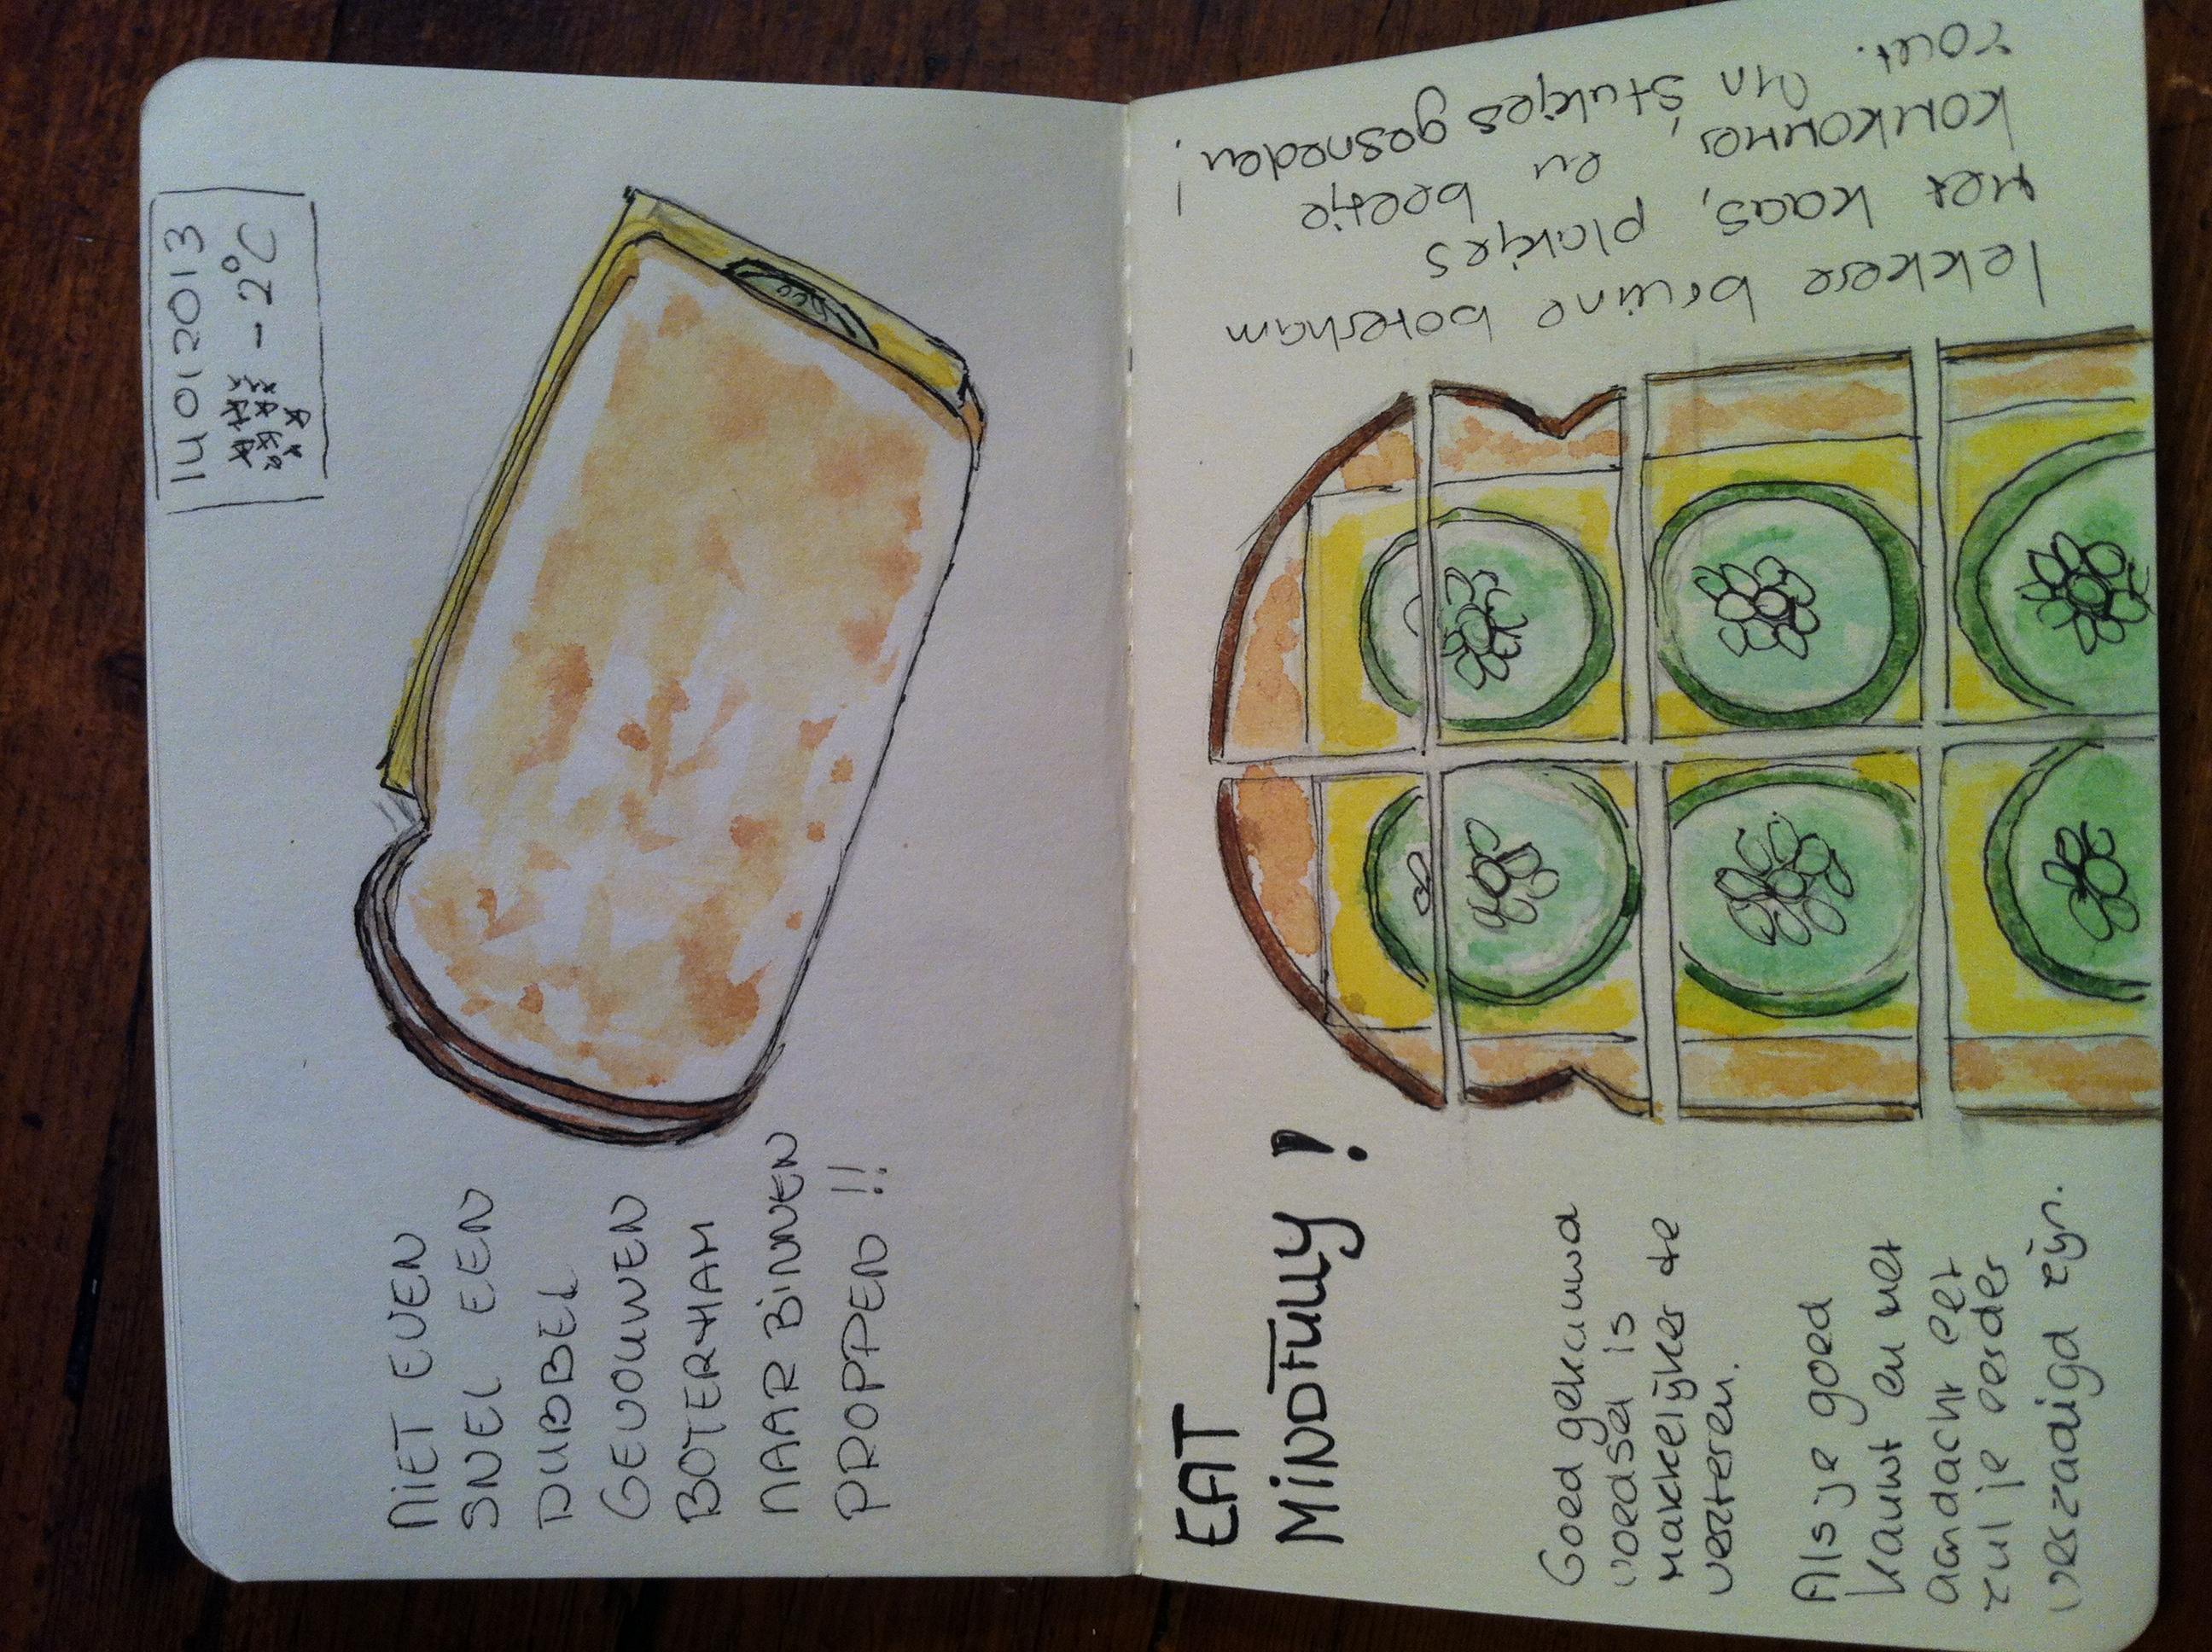 14 01 2013
- 2°C
NIET EVEN
SNEL EEN
DUBBEL
GEVOUWEN
BOTERHAM
NAAR BINNEN
PROPPEN !!
EAT
MINDFULLY !
Goed gekauwd
voedsel is
makkelijker te
verteren.
Als je goed
kauwt en met
aandacht eet
zul je eerder
verzadigd zijn.
lekkere bruine boterham
met kaas, plakjes
komkommer, en beetje
zout. In stukjes gesneden!